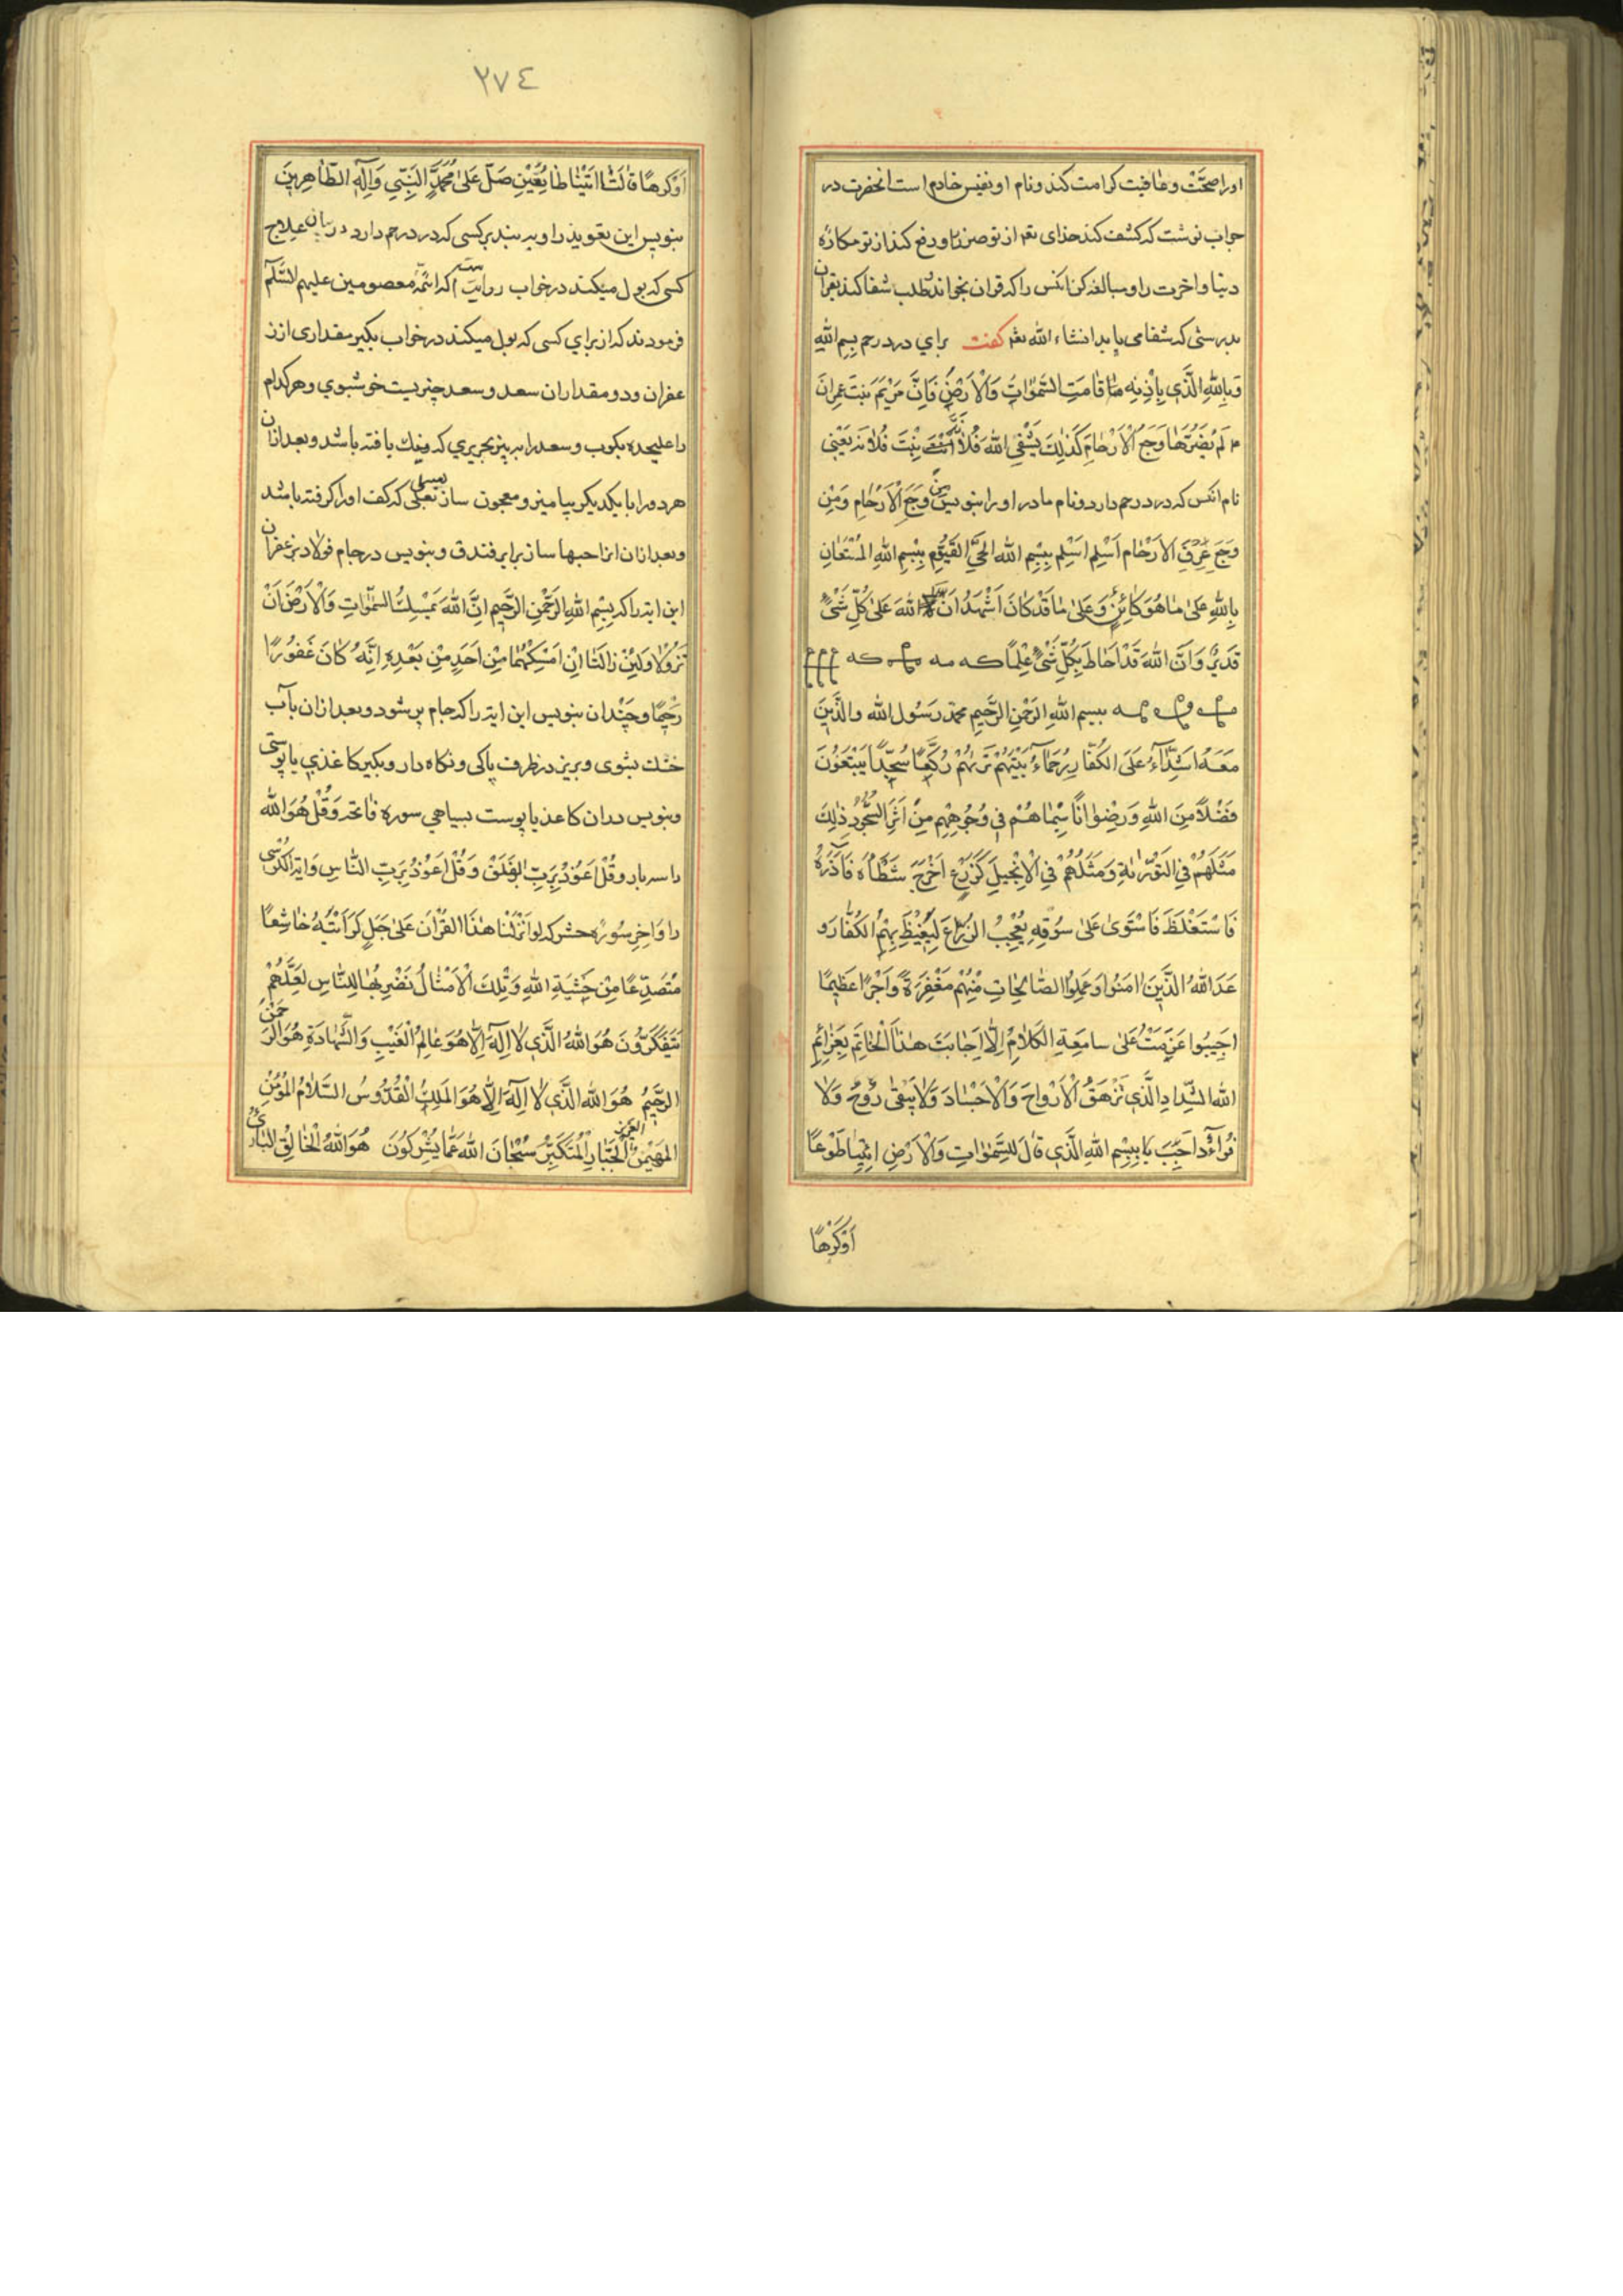 اورا صحّت و عافیت کرامت کند و نام او نفیس خادم است انحضرت در
جواب نوشت که کشف کند خدای تعم از تو ضرّ تو و دفع کند از تو مکاره
دنیا و اخرت را و مبالغه کن انکس را که قران بخواند و طلب شفا کند بقران
بدرستی که شفا می یابد انشاء الله تعم کفت برای درد رحم بِسمِ اللهِ
وَبِاللهِ الَّذي بِاِذنِهِ مٰا قٰامَتِ السَّمٰوٰاتُ وَالْاَرْضُ فَاِنَّ مَرْیَمَ بِنتَ عِمرانَ
لَمْ یَضُرَّهٰا وَجَعُ الْاَرْحٰامِ کَذٰلِكَ یَشْفِي اللهُ فُلانَةَ بِنْتَ فُلانَة یَعْنی
نام انکس که درد رحم دارد و نام مادر او را بنویس مِن وَجَعِ الْاَرْحٰامِ وَمِن
وَجَعِ عِرقِ الاَرْحٰامِ اَسْلِم اَسْلِم بِبِسْمِ اللهِ الحَيِّ القَیُّومِ بِبِسْمِ اللهِ المُسْتَعٰانِ
بِاللهِ عَلیٰ مٰا هُوَ کائِنٌ وَ عَلیٰ مٰا قَدْ کٰانَ اَشْهَدُ اَنَّ اللهَ عَلیٰ کُلِّ شَیْءٍ
قَدیرٌ وَاَنَّ اللهَ قَدْ اَحٰاطَ بِکُلِّ شَیْءٍ عِلْمًا
بِسمِ اللهِ الرَّحْمٰنِ الرَّحیمِ محمّد رَسُولُ الله والَّذینَ
مَعَهُ اَشِدّٰآءُ عَلَی الکُفّٰارِ رُحَمٰاءُ بَیْنَهُمْ تَرٰیهُمْ رُکَّعًا سُجَّدًا یَبْتَغُونَ
فَضْلًا مِنَ اللهِ وَرِضْوٰانًا سِیْمٰاهُمْ فی وُجُوهِهِم مِنْ اَثَرِ السُّجُودِ ذٰلِكَ
مَثَلُهُمْ فِي التَّوْرٰیٰةِ وَمَثَلُهُمْ فِي الْاِنْجیلِ کَزَرْعٍ اَخْرَجَ شَطْأَهُ فَآزَرَهُ
فَاسْتَغْلَظَ فَاسْتَوٰی عَلیٰ سُوقِهِ یُعْجِبُ الزُّرّٰاعَ لِیَغیظَ بِهِمُ الکُفّٰارَ وَ
عَدَ اللهُ الَّذینَ اٰمَنُوا وَعَمِلُوا الصّٰالِحٰاتِ مِنْهُمْ مَغْفِرَةً وَاَجْرًا عَظیمًا
اَجیبُوا عَزَمْتُ عَلیٰ سامِعَةِ الکَلٰامِ اِلّٰا اَجٰابَتْ هٰذَا الْخٰاتَم بِعَزٰائِمِ
اللهِ الشِّدادِ الَّذي تَزْهَقُ الْاَرْواحَ وَالْاَجْسٰادَ وَلٰا یَبْقیٰ رُوحٌ وَلٰا
فُؤٰادٌ اَجِبْ یٰا بِبِسْمِ اللهِ الَّذي قٰالَ لِلسَّمٰوٰاتِ وَالْاَرْضِ ائْتِیٰا طَوْعًا
اَوْکَرْهًا
٢٧٤
اَوْکَرهًا قٰالَتٰا اَتَیْنٰا طٰائِعینَ صَلِّ عَلیٰ مُحَمَّدٍ النَّبِيِّ وَآلِهِ الطّٰاهِرینَ
بنویس این تعویذ را و به بند بر کسی که درد رحم دارد در بیان علاج
کسی که بول میکند در خواب روایت است که ائمّه معصومین علیهم السَّلٰم
فرمودند که از برای کسی که بول میکند در خواب بکیر مقداری از ز
عفران و دو مقدار ان سعد و سعد چیزیست خوشبوی و هر کدام
را علیحده بکوب و سعد را به بیز بحریری که نیك بافته باشد و بعد ازان
هر دو را با یکدیکر بیامیز و معجون ساز بعسلی که کف او را کرفته باشند
و بعد ازان انرا حبها ساز برابر فندق و بنویس در جام فولاد بزعفران
این ایه را که بِسْمِ اللهِ الرَّحْمٰنِ الرَّحیمِ اِنَّ اللهَ یُمْسِكُ السَّمٰوٰاتِ وَالْاَرْضَ اَنْ
تَزُوْلٰا وَلَئِنْ زٰالَتٰا اِنْ اَمْسَکَهُمٰا مِنْ اَحَدٍ مِنْ بَعْدِهِ اِنَّهُ کٰانَ غَفُورًا
رَحیمًا و چندان بنویس این ایه را که جام پر شود و بعد ازان بآب
خنك بشوی و بریز در ظرف پاکی و نکاه دار و بکیر کاغذی یا پوستی
و بنویس در ان کاغذ یا پوست بسیاهی سوره فٰاتحه وَقُلْ هُوَ الله
را سه بار و قُلْ اَعُوْذُ بِرَبِّ الفَلَقْ وَ قُلْ اَعُوْذُ بِرَبِّ النّٰاسِ وَ ایة الکُرْسی
را وَ اٰخِر سُورَه حشر که لَو اَنْزَلْنٰا هٰذَا القُرْاٰنَ عَلیٰ جَبَلٍ لَرَأَیْتَهُ خٰاشِعًا
مُتَصَدِّعًا مِنْ خَشْیَةِ اللهِ وَ تِلْكَ الْاَمْثٰالُ نَضْرِبُهٰا لِلنّٰاسِ لَعَلَّهُمْ
یَتَفَکَّرُونَ هُوَ اللهُ الَّذي لٰا اِلٰهَ اِلّٰا هُوَ عٰالِمُ الْغَیْبِ وَالشَّهٰادَةِ هُوَ الرَّحْمٰنُ
الرَّحیْمُ هُوَ الله الَّذي لٰا اِلٰهَ اِلّٰا هُوَ المَلِكُ الْقُدُّوسُ السَّلٰامُ المُؤْمِنُ
المُهَیْمِنُ العَزیزُ الْجَبّٰارُ الْمُتَکَبِّرُ سُبْحٰانَ اللهِ عَمّٰا یُشْرِکُوْنَ هُوَ اللهُ الْخٰالِقُ البٰارِئُ